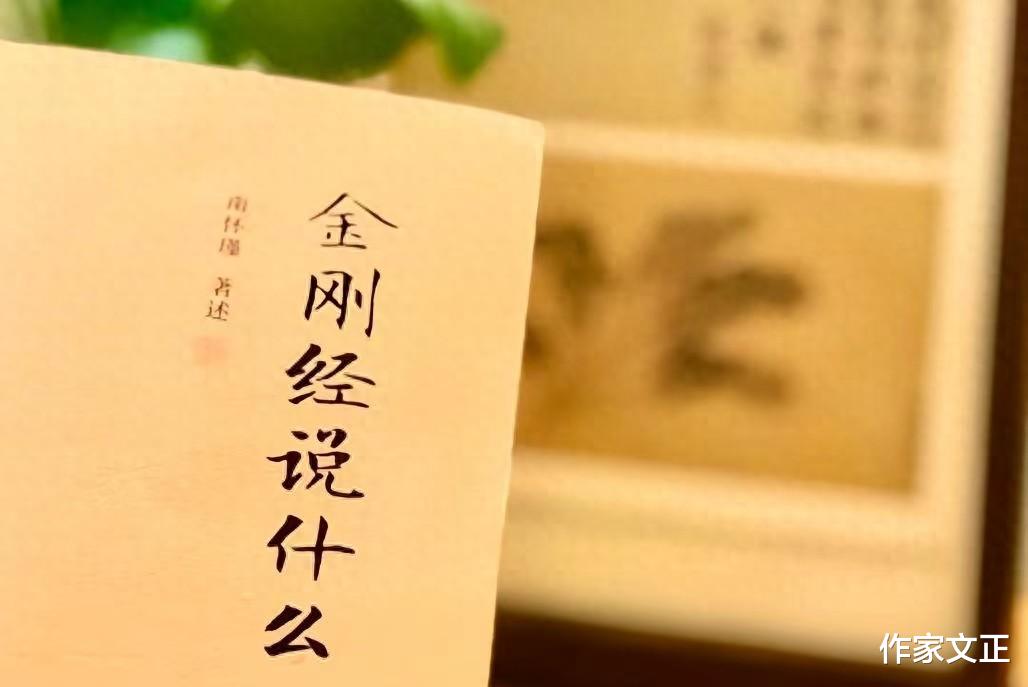 金刚经说什么
南怀瑾 著述
作家文正